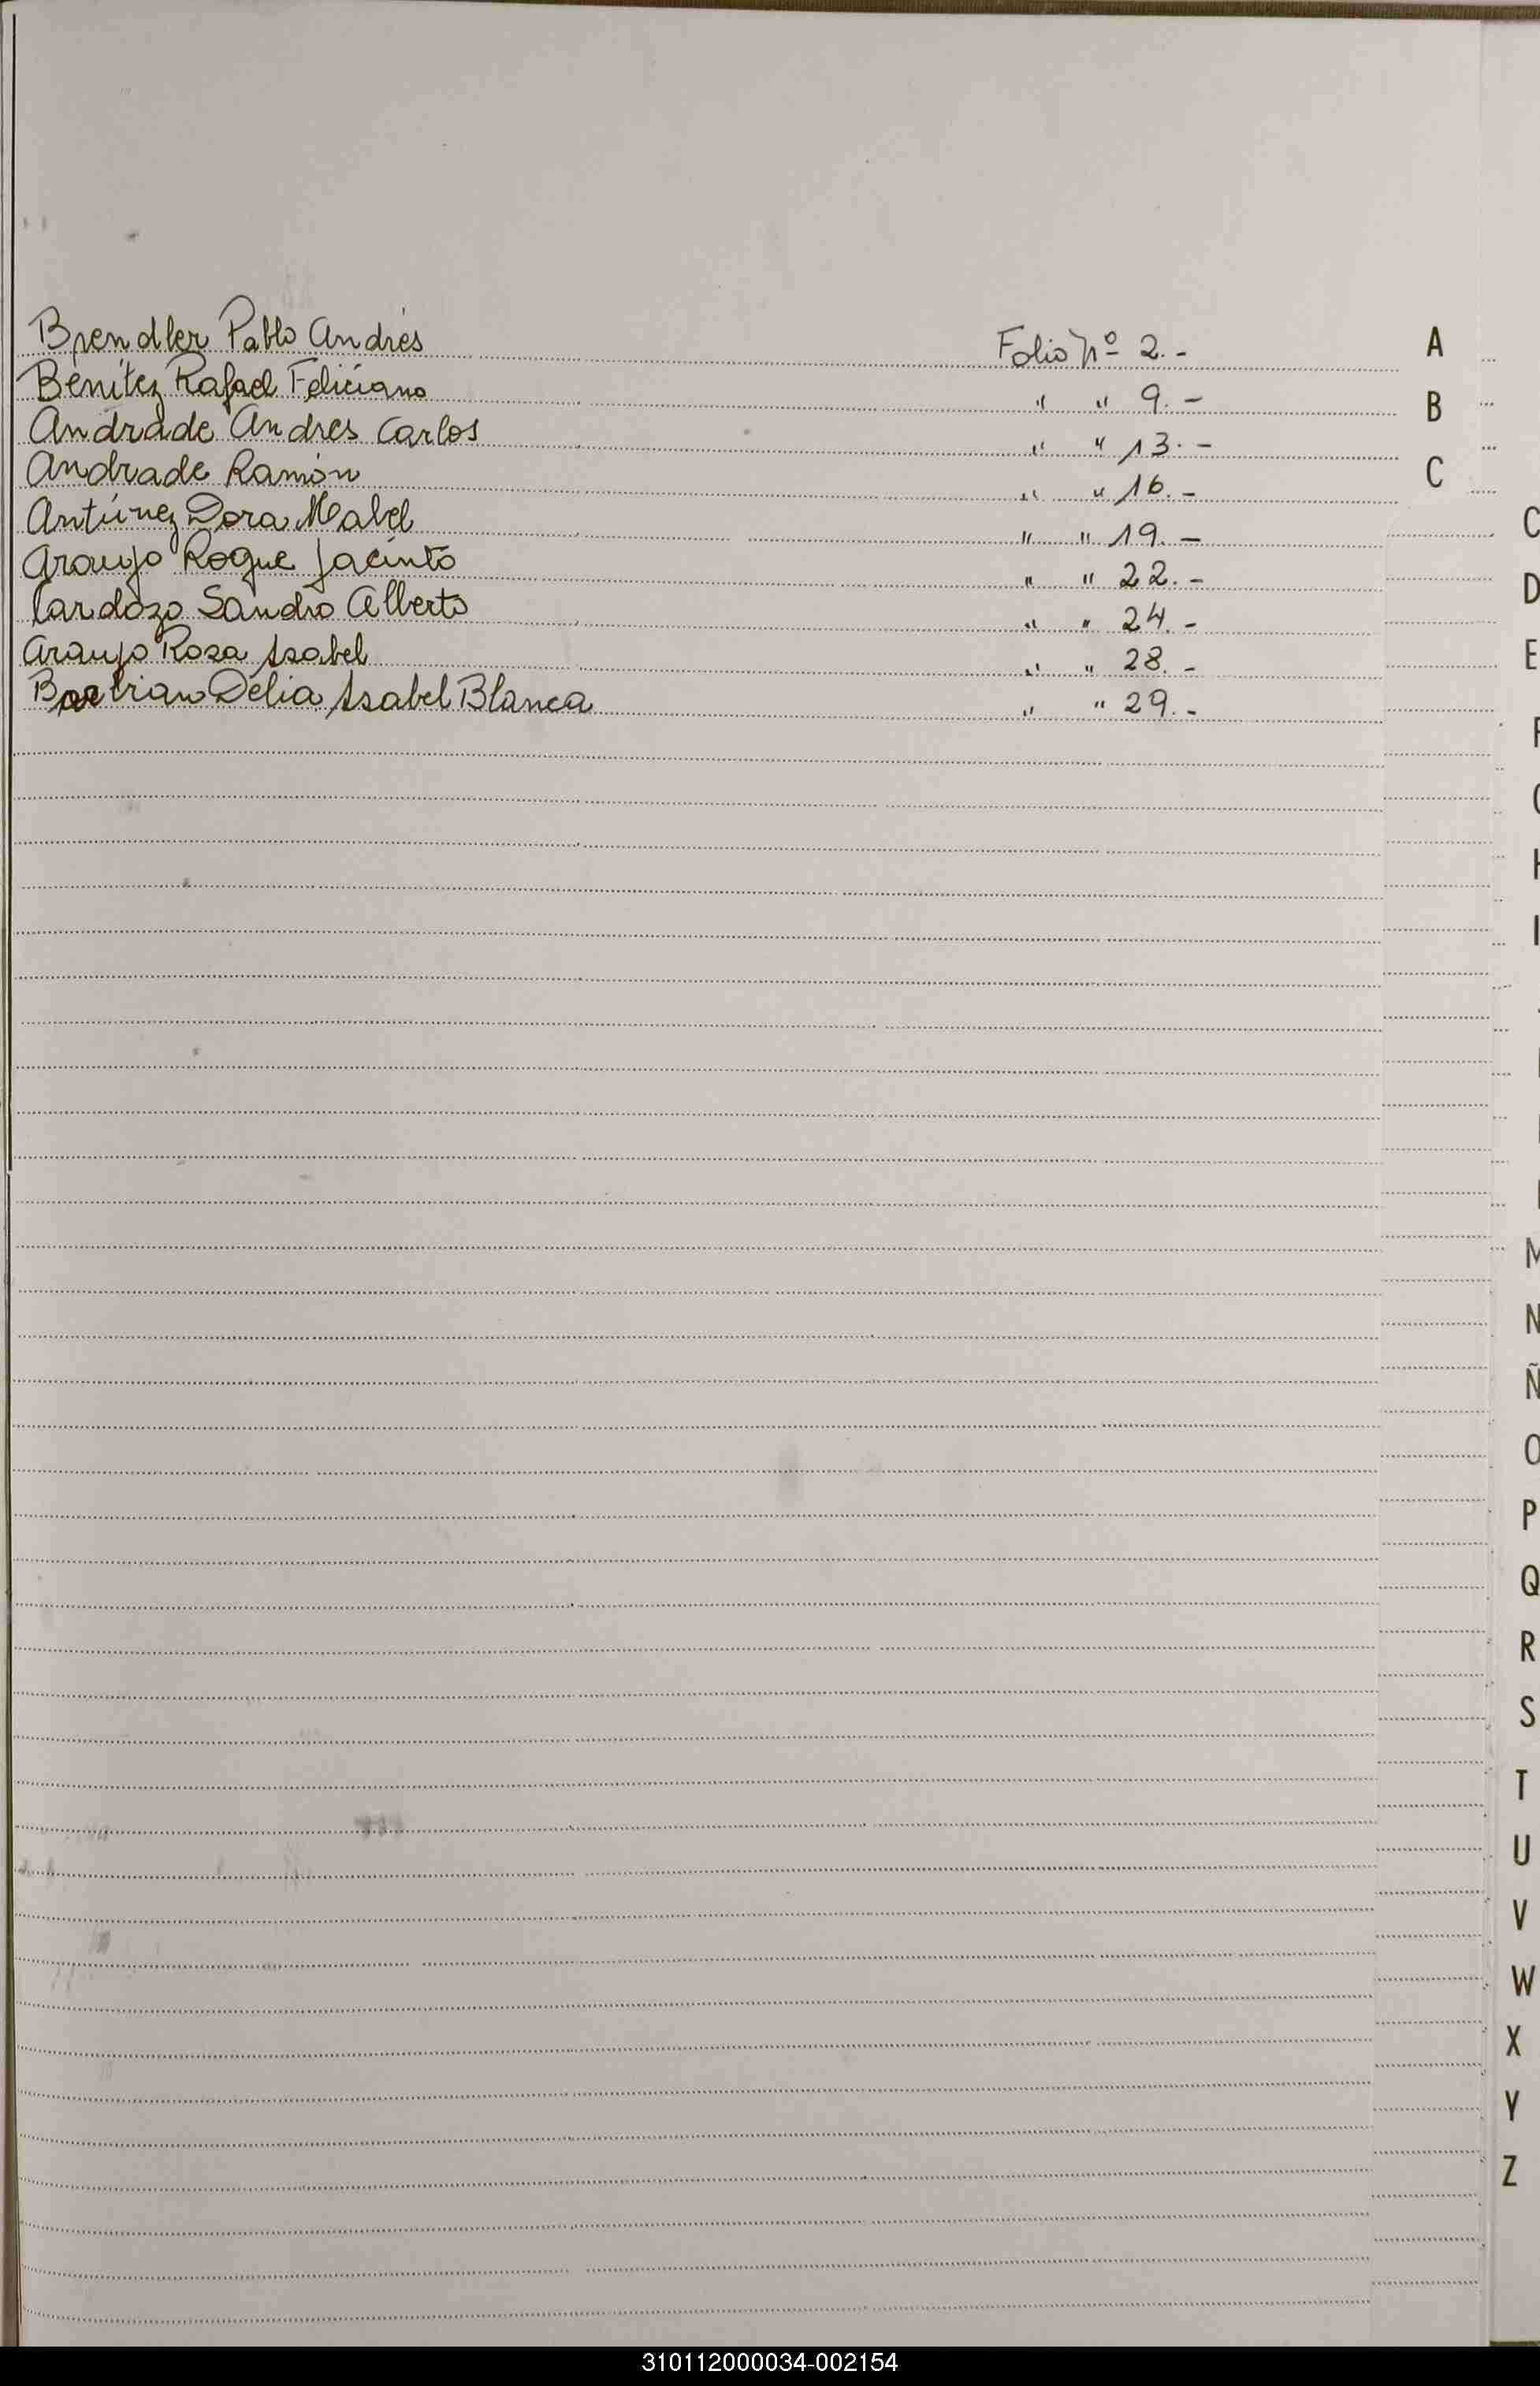 Brendler Pablo Andrés Folio Nº 2.-
Benítez Rafael Feliciano " " 9.-
Andrade Andres Carlos " " 13.-
Andrade Ramón " " 16.-
Antúnez Dora Mabel " " 19.-
Araujo Roque Jacinto " " 22.-
Cardozo Sandro Alberto " " 24.-
Araujo Rosa Isabel " " 28.-
Delia Isabel Blanca " " 29.-
A
B
C
C
D
E
F
G
H
I
M
N
Ñ
O
P
Q
R
S
T
U
V
W
X
Y
Z
310112000034-002154